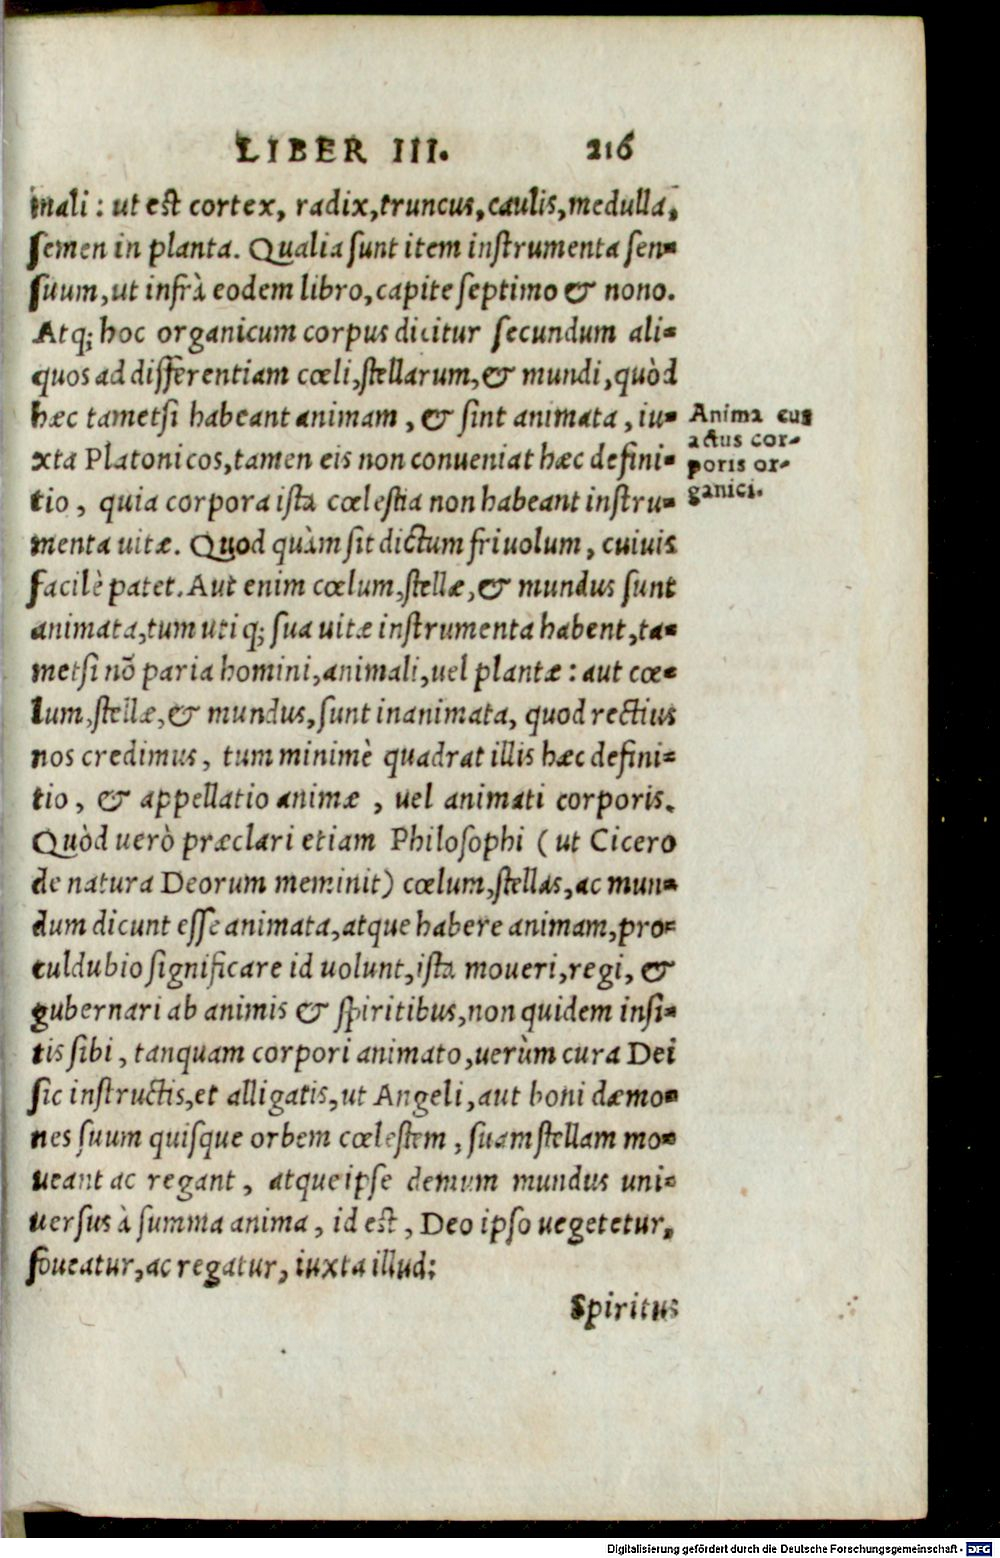 LIBER III. 216
mali : ut est cortex, radix, truncus, caulis, medulla,
semen in planta. Qualia sunt item instrumenta sen-
suum, ut infrà eodem libro, capite septimo & nono.
Atq; hoc organicum corpus dicitur secundum ali-
quos ad differentiam cœli, stellarum, & mundi, quòd
hæc tametsi habeant animam, & sint animata, iu-
xta Platonicos, tamen eis non conueniat hæc defini-
tio, quia corpora ista cœlestia non habeant instru-
menta uitæ. Quod quàm sit dictum friuolum, cuiuis
facilè patet. Aut enim cœlum, stellæ, & mundus sunt
animata, tum utiq; sua uitæ instrumenta habent, ta-
metsi nõ paria homini, animali, uel plantæ : aut cœ-
lum, stellæ, & mundus, sunt inanimata, quod rectius
nos credimus, tum minimè quadrat illis hæc defini-
tio, & appellatio animæ, uel animati corporis.
Quòd uerò præclari etiam Philosophi (ut Cicero
de natura Deorum meminit) cœlum, stellas, ac mun-
dum dicunt esse animata, atque habere animam, pro-
culdubio significare id uolunt, ista moueri, regi, &
gubernari ab animis & spiritibus, non quidem insi-
tis sibi, tanquam corpori animato, uerùm cura Dei
sic instructis, et alligatis, ut Angeli, aut boni dæmo-
nes suum quisque orbem cœlestem, suam stellam mo-
ueant ac regant, atque ipse demum mundus uni-
uersus à summa anima, id est, Deo ipso uegetetur,
foueatur, ac regatur, iuxta illud:
Spiritus
Anima cus
actus cor-
poris or-
ganici.
Digitalisierung gefördert durch die Deutsche Forschungsgemeinschaft - DFG